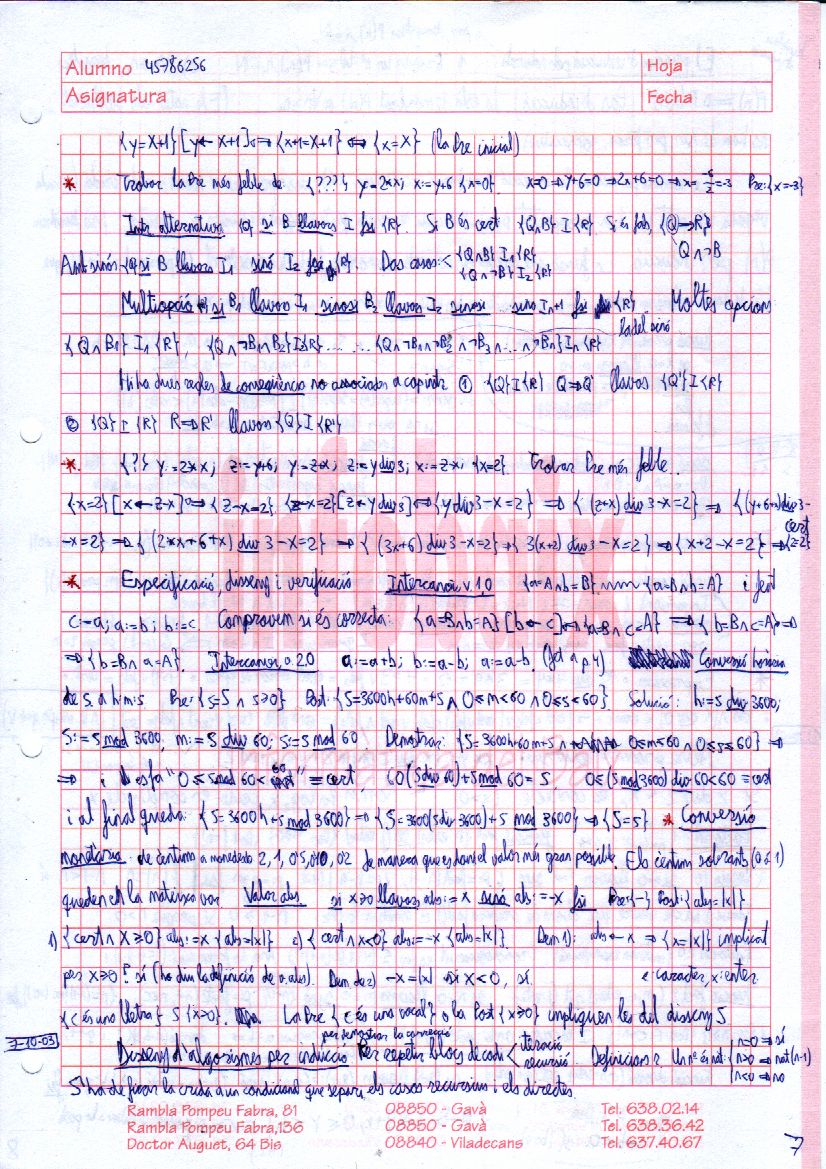 Alumno 45786256
Hoja
Asignatura
Fecha
{y=X+1}[y← X+1] ⇔ {x+1=X+1} ⇔ {x=X} (la Pre inicial)
* Trobar la Pre més feble de: {???} y=2*x; x:=y+6 {x=0}. x=0⇒y+6=0⇒2x+6=0⇒x=-6/2=-3 Pre:{x=-3}
Instr. alternativa {Q} si B llavors I fsi {R}. Si B és cert {Q∧B} I {R} Si és fals, {Q→R}
Q∧¬B
Amb sinó: {Q} si B llavors I1 sinó I2 fsi {R}. Dos casos: {Q∧B} I1 {R}
{Q∧¬B} I2 {R}
Multiopció {Q} si B1 llavors I1 sinosi B2 llavors I2 sinosi ... sino In+1 fsi {R}. Moltes opcions
la del sinó
{Q∧B1} I1 {R}, {Q∧¬B1∧B2} I2 {R} ... {Q∧¬B1∧¬B2∧¬B3∧...∧¬Bn} In {R}
Hi ha dues regles de conseqüència no associades a cap instr ① {Q} I {R} Q⇒Q' llavors {Q'} I {R}
② {Q} I {R} R⇒R' llavors {Q} I {R'}
* {?} y:=2*x; z:=y+6; y:=z+x; z:=y div 3; x:=z-x; {x=2}. Trobar Pre més feble.
{x=2}[x←z-x] ⇔ {z-x=2}. {z-x=2}[z←y div 3] ⇔ {y div 3-x=2} ⇒ {(z+x) div 3-x=2} ⇒ {(y+6+x) div 3-
-x=2} ⇒ {(2*x+6+x) div 3-x=2} ⇒ {(3x+6) div 3-x=2} ⇒ {3(x+2) div 3-x=2} ⇒ {x+2-x=2} ⇒ {2=2}
cert
* Especificació, disseny i verificació Intercanvi v.1.0 {a=A∧b=B} {a=B∧b=A} i fent
c:=a; a:=b; b:=c. Comprovem si és correcta: {a=B∧b=A}[b←c] ⇔ {a=B∧c=A} ⇒ {b=B∧c=A} ⇒
⇒ {b=B∧a=A}. Intercanvi v. 2.0 a:=a+b; b:=a-b; a:=a-b (fet a p.4) Conversió horària
de s. a h:m:s Pre:{s=S∧s≥0} Post:{S=3600h+60m+s∧0≤m<60∧0≤s<60}. Solució: h:=s div 3600;
s:=s mod 3600, m:=s div 60; s:=s mod 60. Demostrar: {S=3600h+60m+s∧0≤m≤60∧0≤s≤60} ⇒
⇒ i es fa "0≤s mod 60<60" = cert, 60(s div 60)+s mod 60=s. 0≤(s mod 3600) div 60<60 = cert
i al final queda: {S=3600h+s mod 3600} ⇒ {S=3600(s div 3600)+s mod 3600} ⇒ {S=s} * Conversió
monetària: de cèntims a monedes de 2, 1, 0'5, 0'2 de manera que es doni el valor més gran possible. Els cèntims sobrants (0 ó 1)
queden en la mateixa var Valor abs si x≥0 llavors abs:=x sinó abs:=-x fsi Pre:{-} Post:{abs=|x|}
1) {cert∧x≥0} abs:=x {abs=|x|} 2) {cert∧x<0} abs:=-x {abs=|x|}. Dem 1): abs←x ⇒ {x=|x|} implicat
per x≥0? sí (ho diu la definició de v. abs). Dem de 2) -x=|x| si x<0, sí. c: caracter, x: enter
{c és una lletra} S {x≥0}. La Pre {c és una vocal} o la Post {x≥0} impliquen les del disseny S
per demostrar la correcció
7-10-03
Disseny d'algorismes per inducció Per repetir blocs de codi < iteració
recursió. Definicions: Un nº és nat: { n=0 ⇒ sí
n>0 ⇒ nat(n-1)
n<0 ⇒ no
S'ha de ficar la crida a un condicional que separi els casos recursius i els directes.
Rambla Pompeu Fabra, 81 08850 - Gavà Tel. 638.02.14
Rambla Pompeu Fabra,136 08850 - Gavà Tel. 638.36.42
Doctor Auguet, 64 Bis 08840 - Viladecans Tel. 637.40.67
7